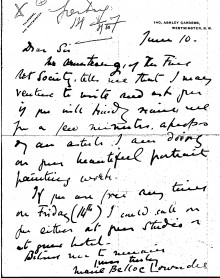 140, ASHLEY GARDENS,
WESTMINSTER, S.W.
June 10.
Dear Sir
of the Fine
Art Society, tells me that I may
venture to write and ask you
if you will kindly receive me
for a few minutes, apropos
of an article I am doing
on your beautiful portrait
painting work.
If you are free any time
on Friday (14th) I could call on
you either at your studio or
at your hotel.
Believe me to remain
yours truly
Marie Belloc Lowndes